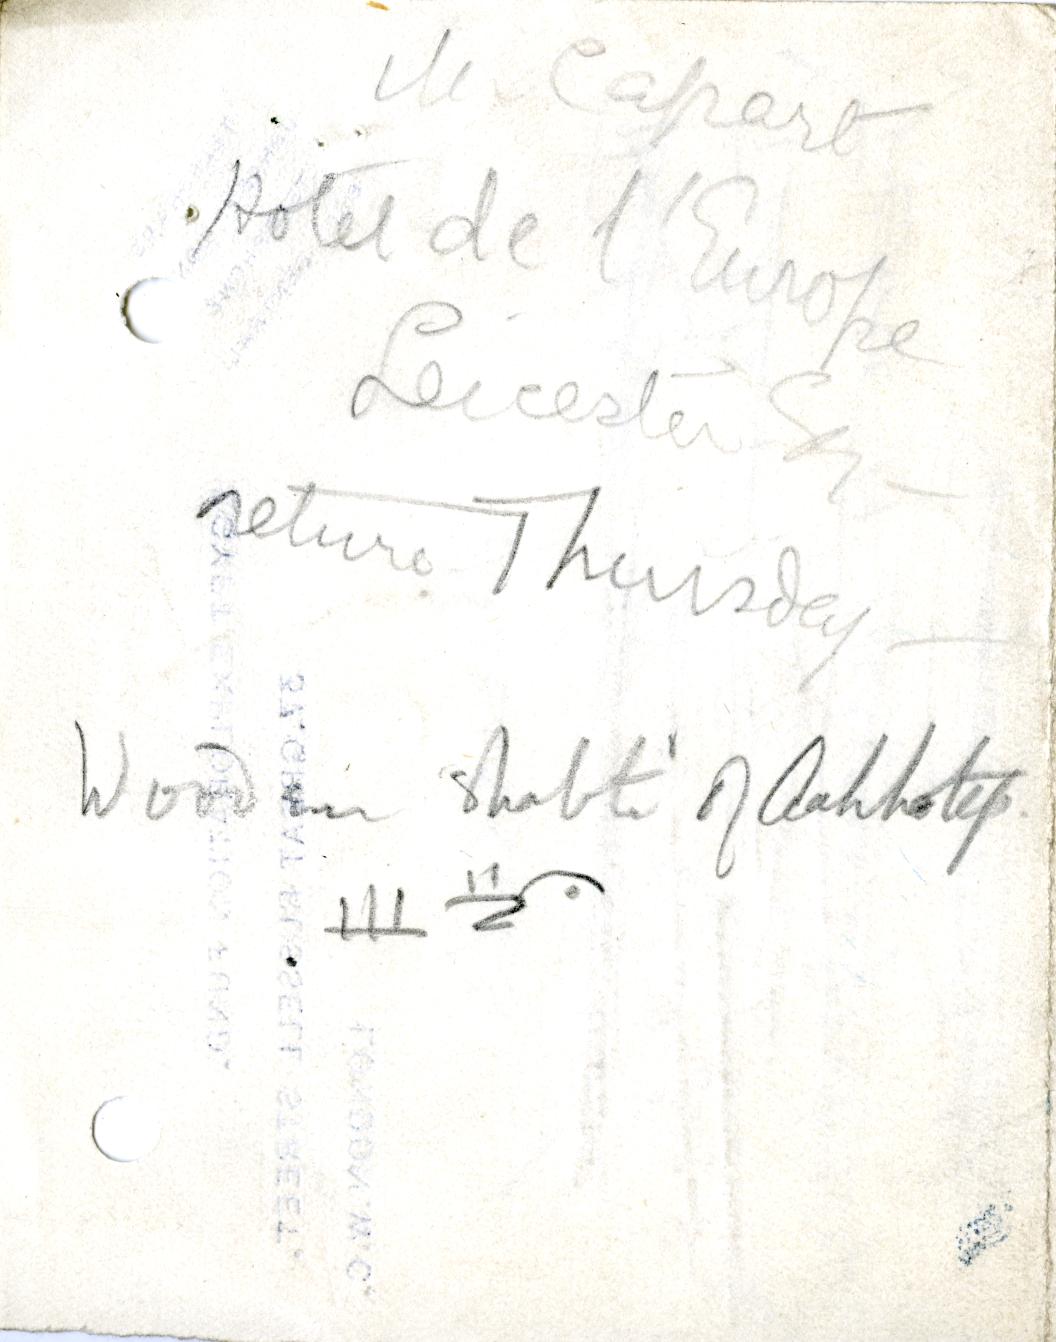 Mr Capart
Hotel de l'Europe
Leicester Sq —
return Thursday —
Wooden shabti of Aahhotep.
EGYPT EXPLORATION FUND.
37, GREAT RUSSELL STREET,
LONDON, W.C.